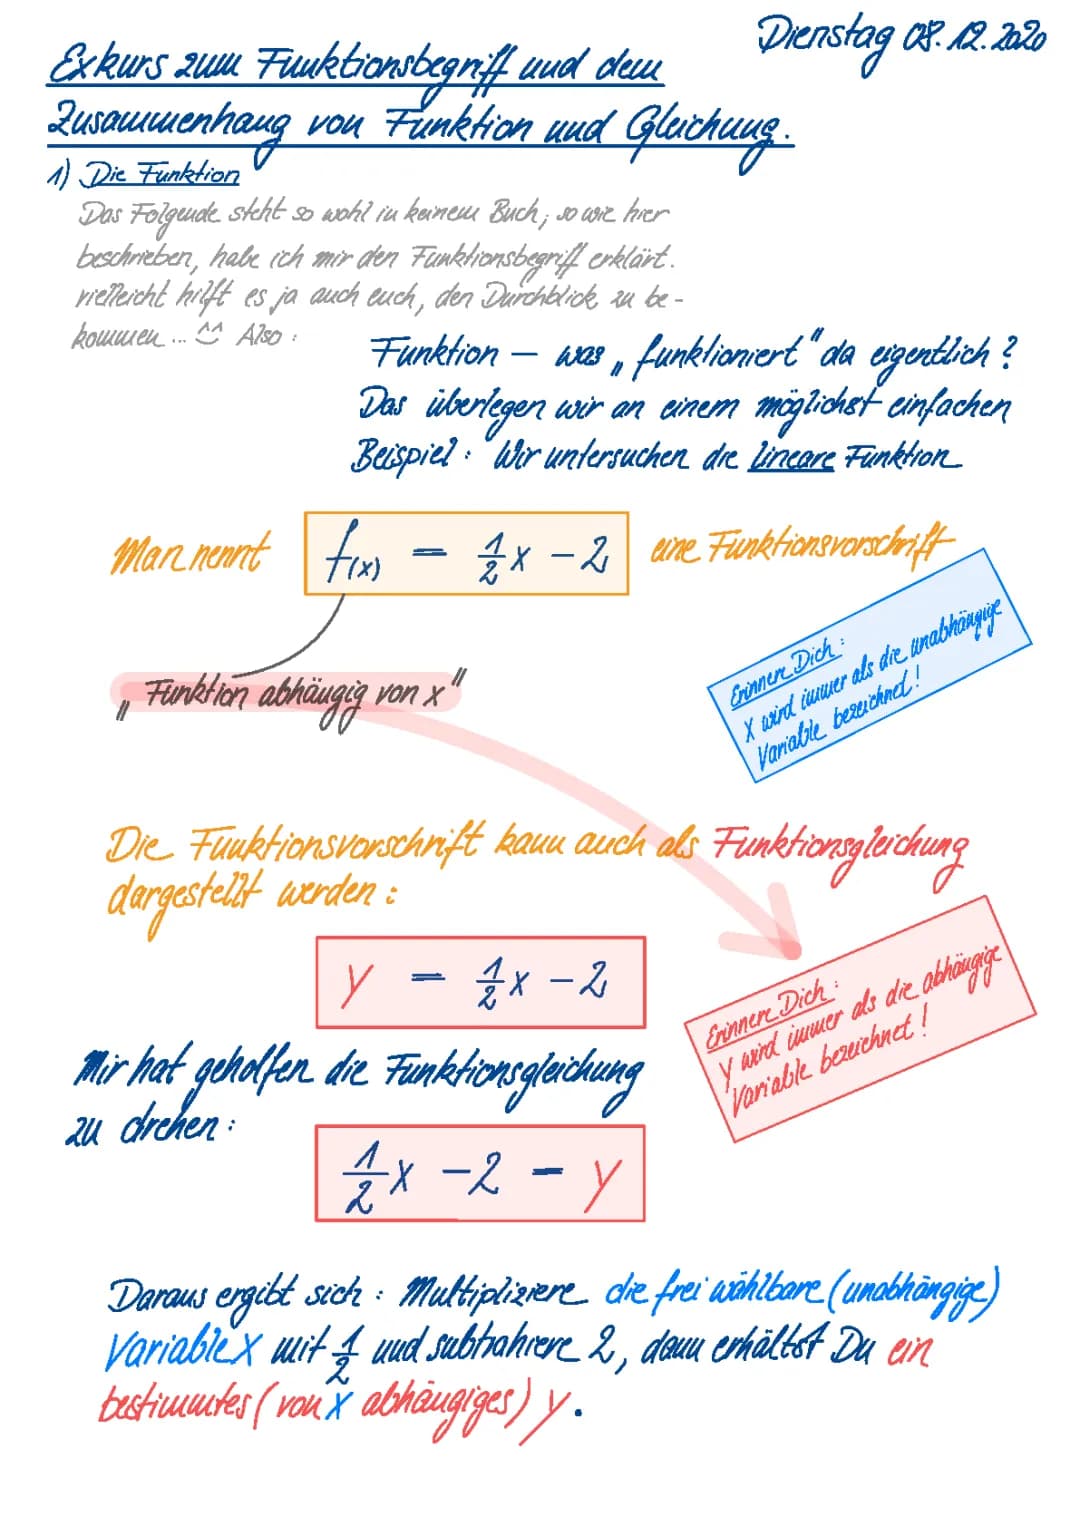 Dienstag 08.12.2020
Exkurs zum Funktionsbegriff und dem
Zusammenhang von Funktion und Gleichung.
1) Die Funktion
Das Folgende steht so wohl in keinem Buch; so wie hier
beschrieben, habe ich mir den Funktionsbegriff erklärt.
vielleicht hilft es ja auch euch, den Durchblick zu be-
kommen... ^^ Also:
Funktion – was „funktioniert“ da eigentlich?
Das überlegen wir an einem möglichst einfachen
Beispiel: Wir untersuchen die lineare Funktion
Man nennt f(x) = 1/2 x - 2 eine Funktionsvorschrift
„Funktion abhängig von x“
Erinnere Dich:
X wird immer als die unabhängige
Variable bezeichnet!
Die Funktionsvorschrift kann auch als Funktionsgleichung
dargestellt werden:
y = 1/2 x - 2
Erinnere Dich:
y wird immer als die abhängige
Variable bezeichnet!
Mir hat geholfen die Funktionsgleichung
zu drehen:
1/2 x - 2 = y
Daraus ergibt sich: Multipliziere die frei wählbare (unabhängige)
Variable X mit 1/2 und subtrahiere 2, dann erhältst Du ein
bestimmtes (von x abhängiges) y.